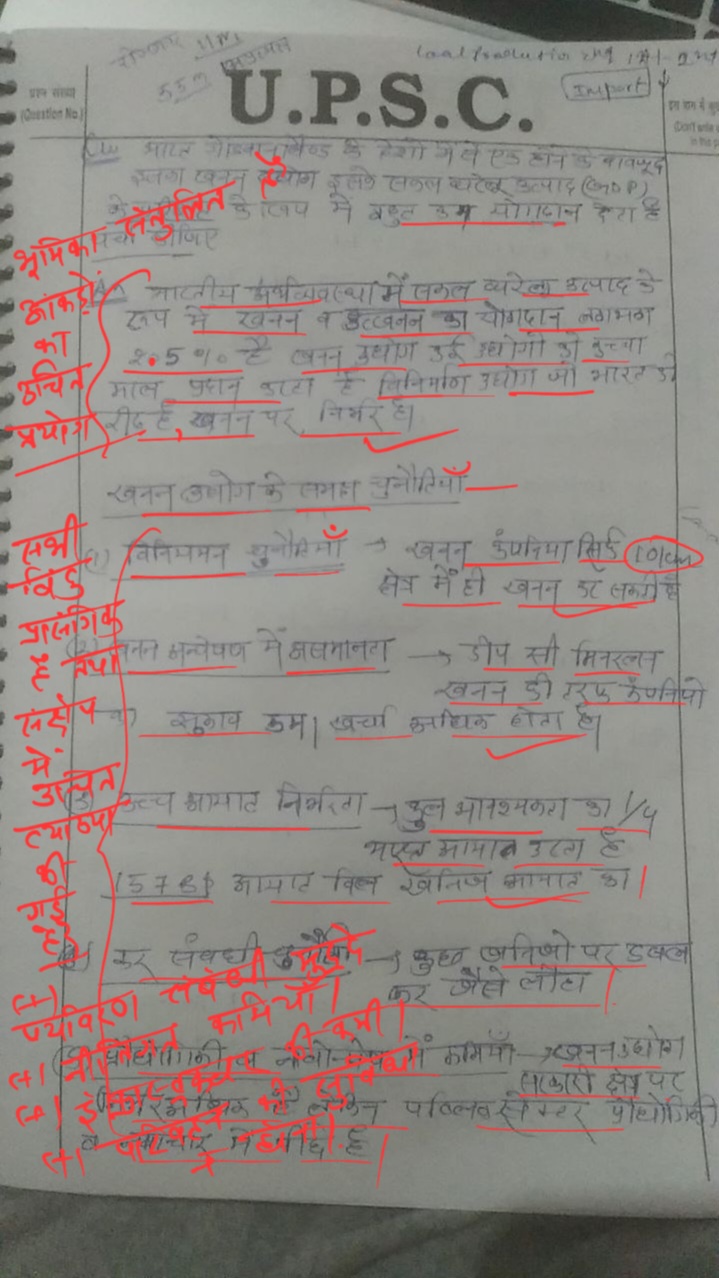 रोजगार
55वां
local production
Import
U.P.S.C.
प्रश्न संख्या
(Question No.)
(Don't write
in this p
भारत गोंडवानालैण्ड के देशों में से एक होने के बावजूद
इसका खनन उद्योग इसके सकल घरेलू उत्पाद (GDP)
के रूप में बहुत कम योगदान देता है
चर्चा कीजिए
भूमिका संतुलित है
आंकड़ों
का
उचित
प्रयोग
भारतीय अर्थव्यवस्था में सकल घरेलू उत्पाद के
रूप में खनन व उत्खनन का योगदान लगभग
2.5% है खनन उद्योग कई उद्योगों को कच्चा
माल प्रदान करता है विनिर्माण उद्योग जो भारत की
रीढ़ है, खनन पर निर्भर है।
खनन उद्योग के समक्ष चुनौतियाँ
सभी
बिंदु
प्रासंगिक
हैं तथा
संक्षेप
में
उचित
व्याख्या
की
गई
है
(1) विनियमन चुनौतियाँ → खनन कंपनियां सिर्फ 10 km
क्षेत्र में ही खनन कर सकती है
(2) खनन अन्वेषण में असमानता → डीप सी मिनरल्स
खनन की तरफ कंपनियों
का झुकाव कम। खर्चा अधिक होता है।
(3) उच्च आयात निर्भरता → कुल आवश्यकता का 1/4
आयात करता है
157 B$ आयात बिल खनिज आयात का।
कर संबंधी → कुछ खनिजों पर डबल
कर जैसे लौहा।
(+) पर्यावरण संबंधी मुद्दे
(+) नीतिगत कमियाँ।
(+) इंफ्रास्ट्रक्चर की कमी।
(+)
प्रौद्योगिकी व में कमियाँ → खनन उद्योग
सरकारी क्षेत्र पर
लेकिन पब्लिक सेक्टर प्रौद्योगिकी
व नवाचार में है।